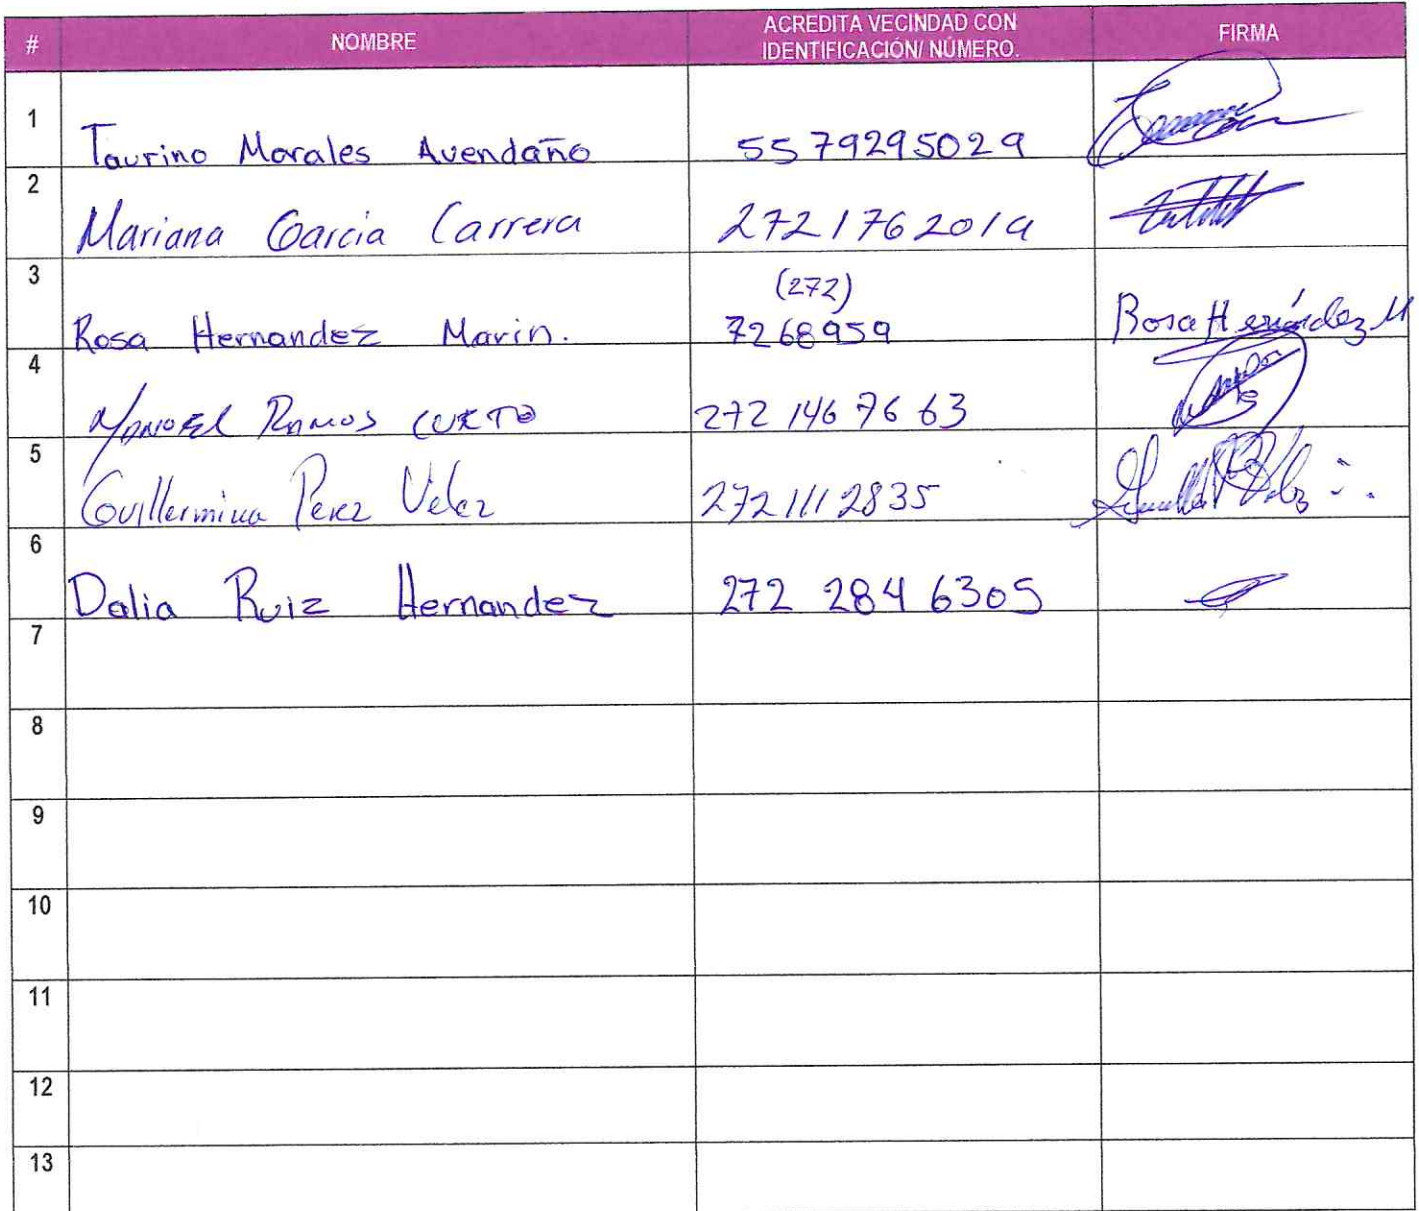 # NOMBRE ACREDITA VECINDAD CON IDENTIFICACIÓN/ NÚMERO. FIRMA
1 Taurino Morales Avendaño 5579295029
2 Mariana Garcia Carrera 2721762019
3 Rosa Hernandez Marin. (272) 7268959 Rosa Hernández M
4 Manuel Ramos CUETO 272 146 76 63
5 Guillermina Perez Velez 272 111 2835
6 Dalia Ruiz Hernandez 272 284 6305
7
8
9
10
11
12
13